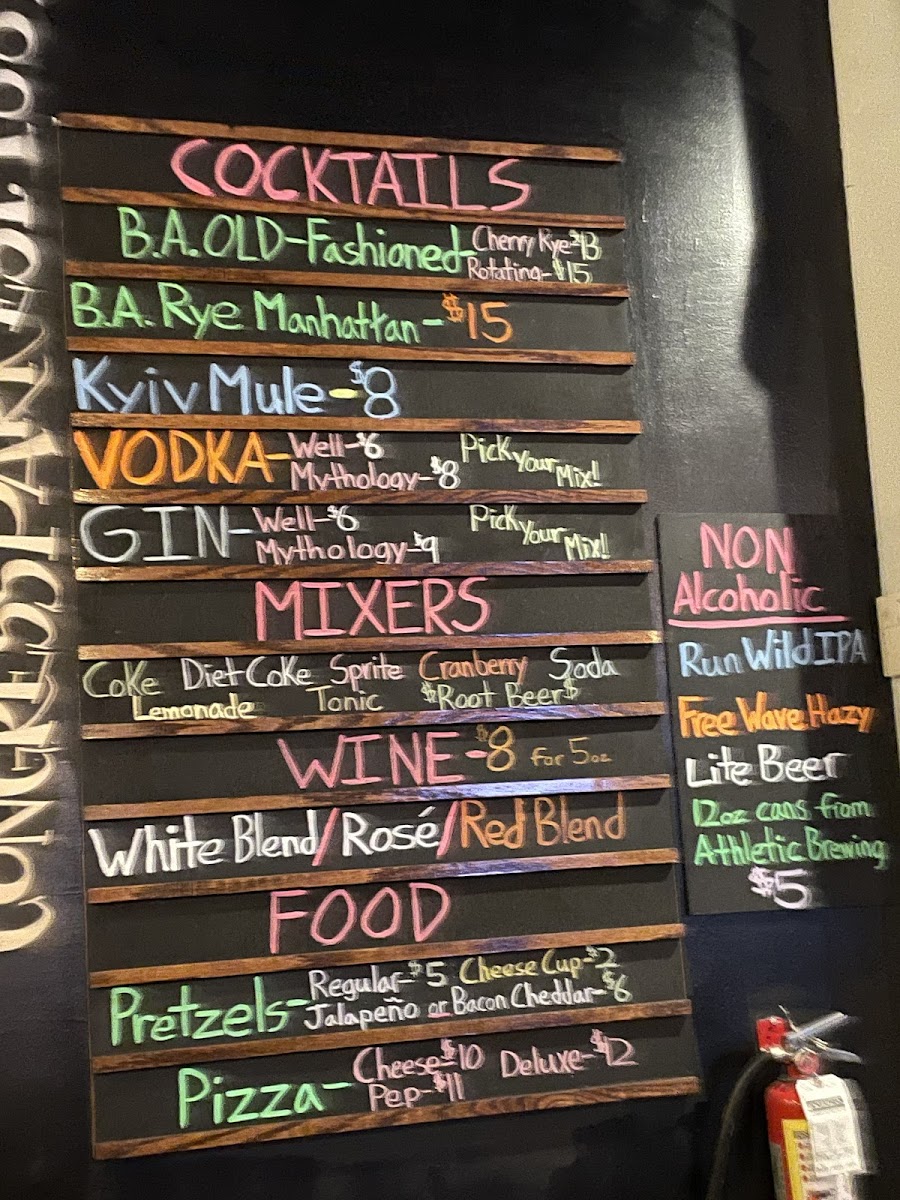 COCKTAILS
B.A. OLD-Fashioned- Cherry Rye-$13
Rotating-$15
B.A. Rye Manhattan-$15
Kyiv Mule-$8
VODKA- Well-$6 Pick your Mix!
Mythology-$8
GIN- Well-$6 Pick your Mix!!
Mythology-$9
MIXERS
Coke Diet Coke Sprite Cranberry Soda
Lemonade Tonic $Root Beer$
WINE-$8 for 5oz
White Blend/Rosé/Red Blend
FOOD
Pretzels- Regular-$5 Cheese Cup-$2
Jalapeño or Bacon Cheddar-$6
Pizza- Cheese-$10 Deluxe-$12
Pep-$11
NON
Alcoholic
Run Wild IPA
Free Wave Hazy
Lite Beer
12oz cans from
Athletic Brewing
$5
CONGRESS PARK